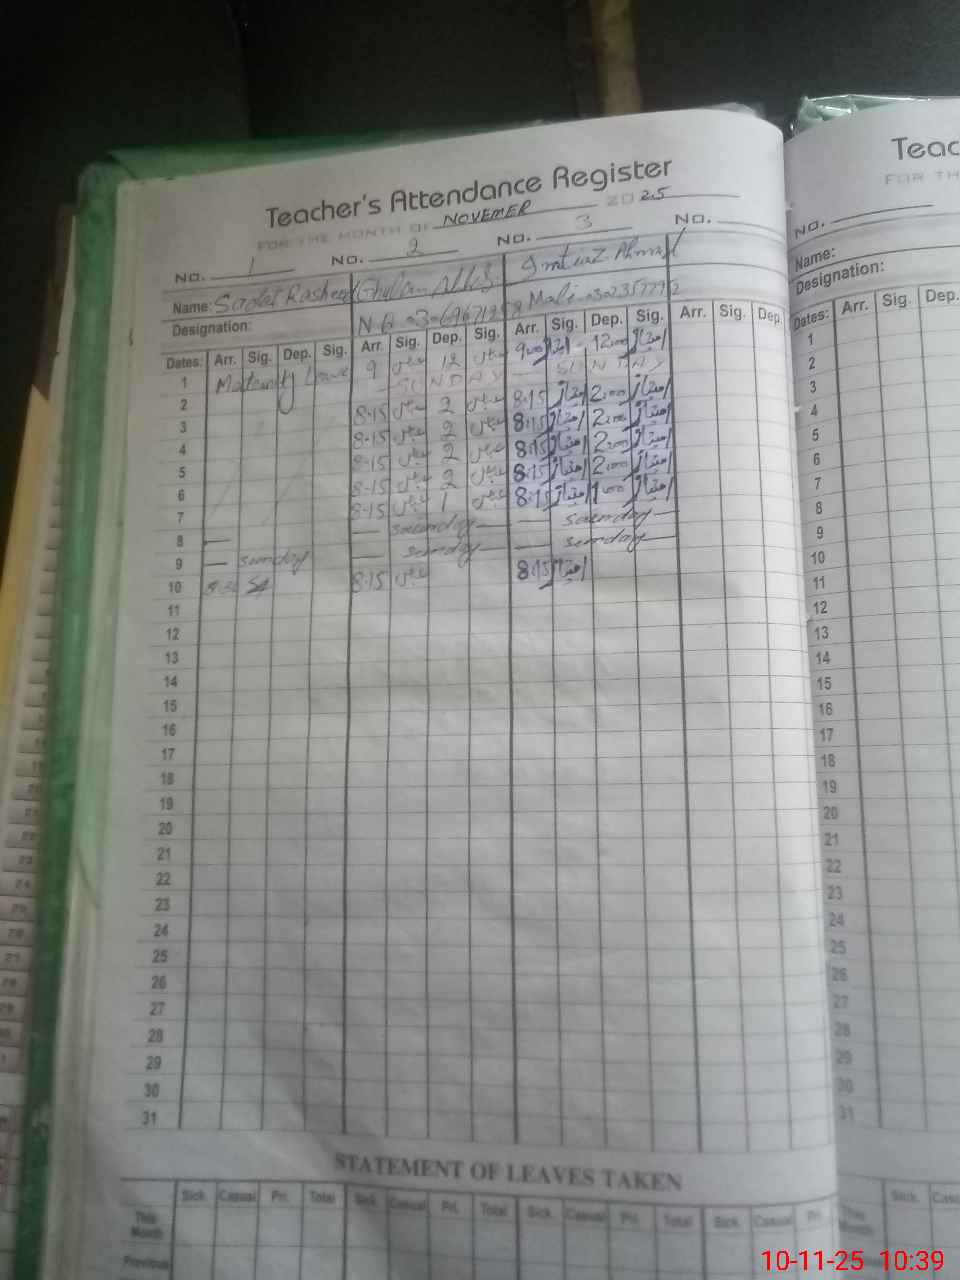 Teacher's Attendance Register
FOR THE MONTH OF NOVEMER 2025
NO. 1 NO. 2 NO. 3 NO.
Name: Sadat Rasheed Ghulam Abbas Imtiaz Ahmad
Designation: N.Q Mali
Dates: Arr. Sig. Dep. Sig. Arr. Sig. Dep. Sig. Arr. Sig. Dep. Sig. Arr. Sig. Dep.
1 Maternity Leave 9 عباس 12 عباس 9:00 امتیاز 12:00 امتیاز
2 SUNDAY SUNDAY
3 8.15 عباس 2 عباس 8:15 امتیاز 2:00 امتیاز
4 8.15 عباس 2 عباس 8:15 امتیاز 2:00 امتیاز
5 8.15 عباس 2 عباس 8:15 امتیاز 2:00 امتیاز
6 8.15 عباس 2 عباس 8:15 امتیاز 2:00 امتیاز
7 8.15 عباس 1 عباس 8:15 امتیاز 1:00 امتیاز
8
9 sunday sunday sunday
10 8.15 عباس 8:15 امتیاز
11
12
13
14
15
16
17
18
19
20
21
22
23
24
25
26
27
28
29
30
31
STATEMENT OF LEAVES TAKEN
Sick. Casual Pri. Total Sick. Casual Pri. Total Sick. Casual Pri. Total Sick. Casual Pri.
This Month
Previous
Teac
FOR TH
NO.
Name:
Designation:
Dates: Arr. Sig. Dep.
1
2
3
4
5
6
7
8
9
10
11
12
13
14
15
16
17
18
19
20
21
22
23
24
25
26
27
28
29
30
31
Sick. Cas
This Month
10-11-25 10:39